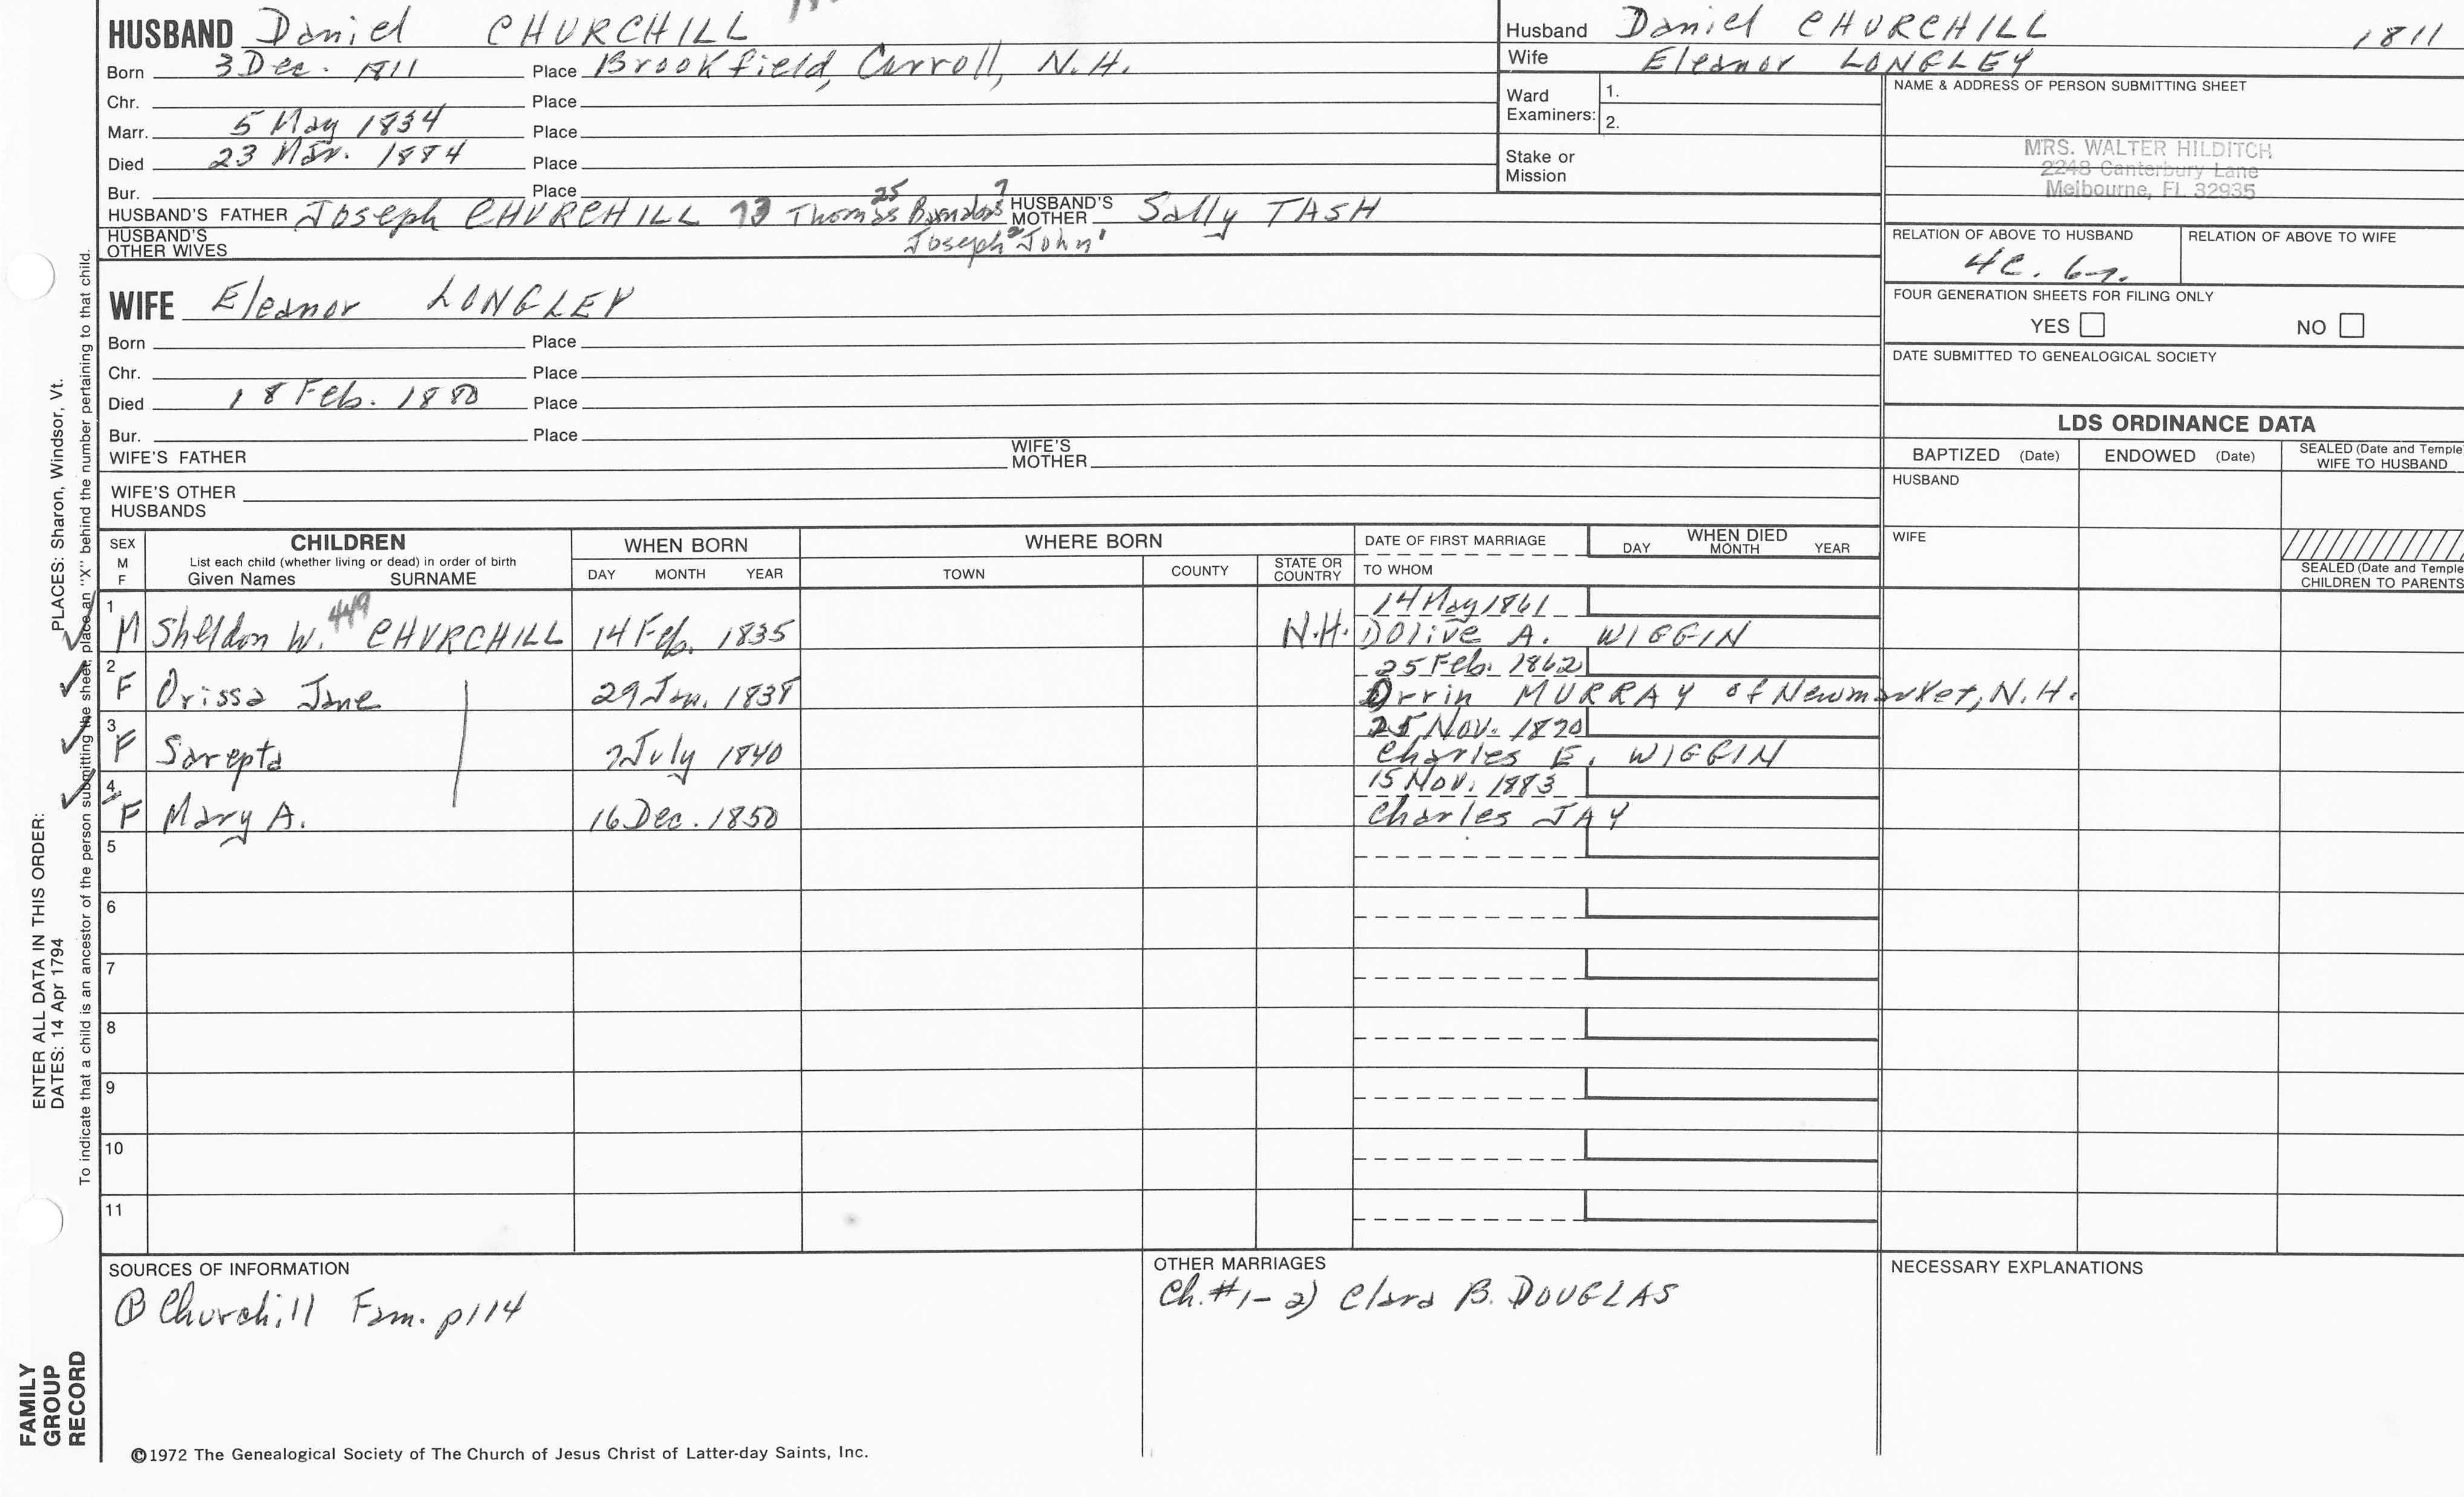 HUSBAND Daniel CHURCHILL
Born 3 Dec. 1811 Place Brookfield, Carroll, N.H.
Chr. Place
Marr. 5 May 1834 Place
Died 23 Mar. 1884 Place
Bur. Place
25 7
HUSBAND'S FATHER Joseph CHURCHILL 73 Thomas Barnabas HUSBAND'S MOTHER Sally TASH
HUSBAND'S OTHER WIVES Joseph 2 John 1
WIFE Eleanor LONGLEY
Born Place
Chr. Place
Died 18 Feb. 1880 Place
Bur. Place
WIFE'S FATHER WIFE'S MOTHER
WIFE'S OTHER HUSBANDS
Husband Daniel CHURCHILL 1811
Wife Eleanor LONGLEY
Ward Examiners: 1.
2.
Stake or Mission
NAME & ADDRESS OF PERSON SUBMITTING SHEET
MRS. WALTER HILDITCH
2248 Canterbury Lane
Melbourne, FL 32935
RELATION OF ABOVE TO HUSBAND RELATION OF ABOVE TO WIFE
4C. 6
FOUR GENERATION SHEETS FOR FILING ONLY
YES NO
DATE SUBMITTED TO GENEALOGICAL SOCIETY
LDS ORDINANCE DATA
BAPTIZED (Date) ENDOWED (Date) SEALED (Date and Temple
WIFE TO HUSBAND
HUSBAND
WIFE
SEALED (Date and Temple
CHILDREN TO PARENTS
SEX M F CHILDREN WHEN BORN WHERE BORN DATE OF FIRST MARRIAGE WHEN DIED
List each child (whether living or dead) in order of birth
Given Names SURNAME DAY MONTH YEAR TOWN COUNTY STATE OR COUNTRY TO WHOM DAY MONTH YEAR
1 449 14 May 1861
M Sheldon W. CHURCHILL 14 Feb. 1835 N.H. Dolive A. WIGGIN
2 25 Feb. 1862
F Orissa Jane 29 Jan. 1838 Orrin MURRAY of Newmarket, N.H.
3 25 Nov. 1870
F Sarepta 7 July 1840 Charles E. WIGGIN
4 15 Nov. 1883
F Mary A. 16 Dec. 1850 Charles JAY
5
6
7
8
9
10
11
SOURCES OF INFORMATION OTHER MARRIAGES NECESSARY EXPLANATIONS
① Churchill Fam. p114
Ch. #1 - 2) Clara B. DOUGLAS
©1972 The Genealogical Society of The Church of Jesus Christ of Latter-day Saints, Inc.
FAMILY
GROUP
RECORD
ENTER ALL DATA IN THIS ORDER:
DATES: 14 Apr 1794 PLACES: Sharon, Windsor, Vt.
To indicate that a child is an ancestor of the person submitting the sheet, place an "X" behind the number pertaining to that child.